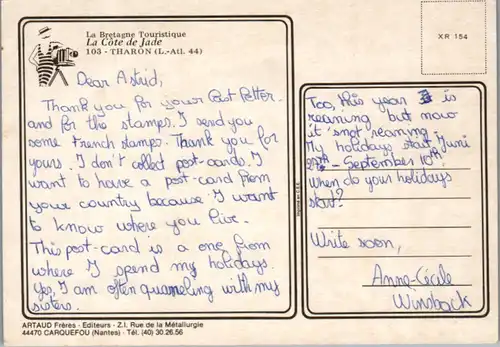 La Bretagne Touristique
La Côte de Jade
103 - THARON (L.-Atl. 44)
XR 154
Dear Astrid,
Thank you for your last letter
and for the stamps. I send you
some french stamps. Thank you for
yours. I don't collect post-cards. I
want to have a post-card from
your country because I want
to know where you live.
This post-card is a one from
where I spend my holidays.
Yes, I am often quarreling with my
sisters.
Too, this year is
reaning but now
it's not reaning.
My holidays start Juni
27th - September 10th.
When do your holidays
start?
Write soon,
Anne-Cécile
Winsback
ARTAUD Frères - Editeurs - Z.I. Rue de la Métallurgie
44470 CARQUEFOU (Nantes) - Tél. (40) 30.26.56